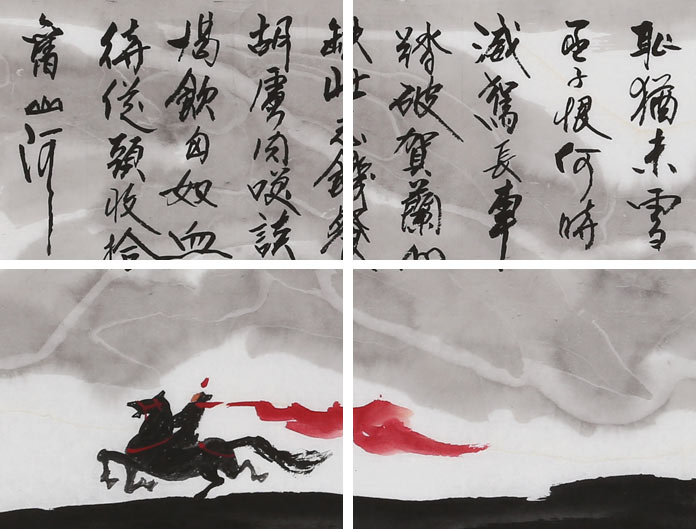 耻猶未雪
臣子恨何時
滅駕長車
踏破賀蘭山
缺壯志飢餐
胡虜肉笑談
渴飲匈奴血
待從頭收拾
舊山河